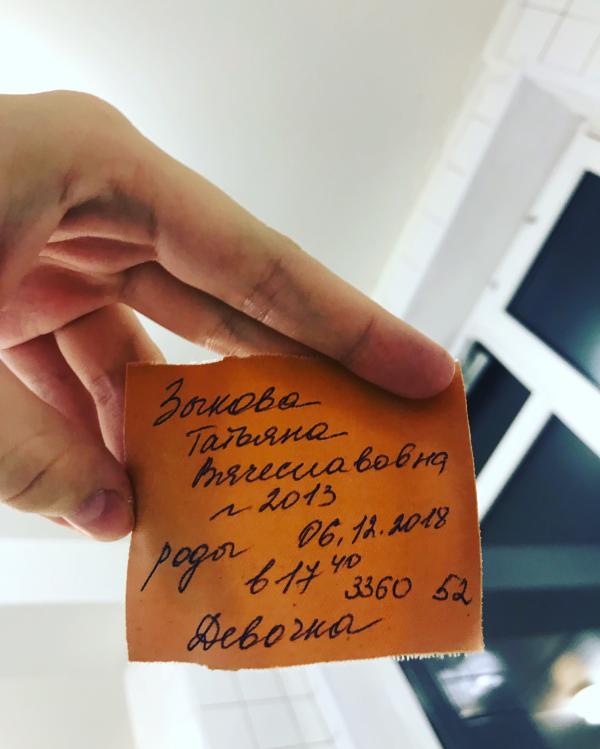 Зыкова
Татьяна
Вячеславовна
~ 2013
роды 06.12.2018
в 17 40 3360 52
Девочка